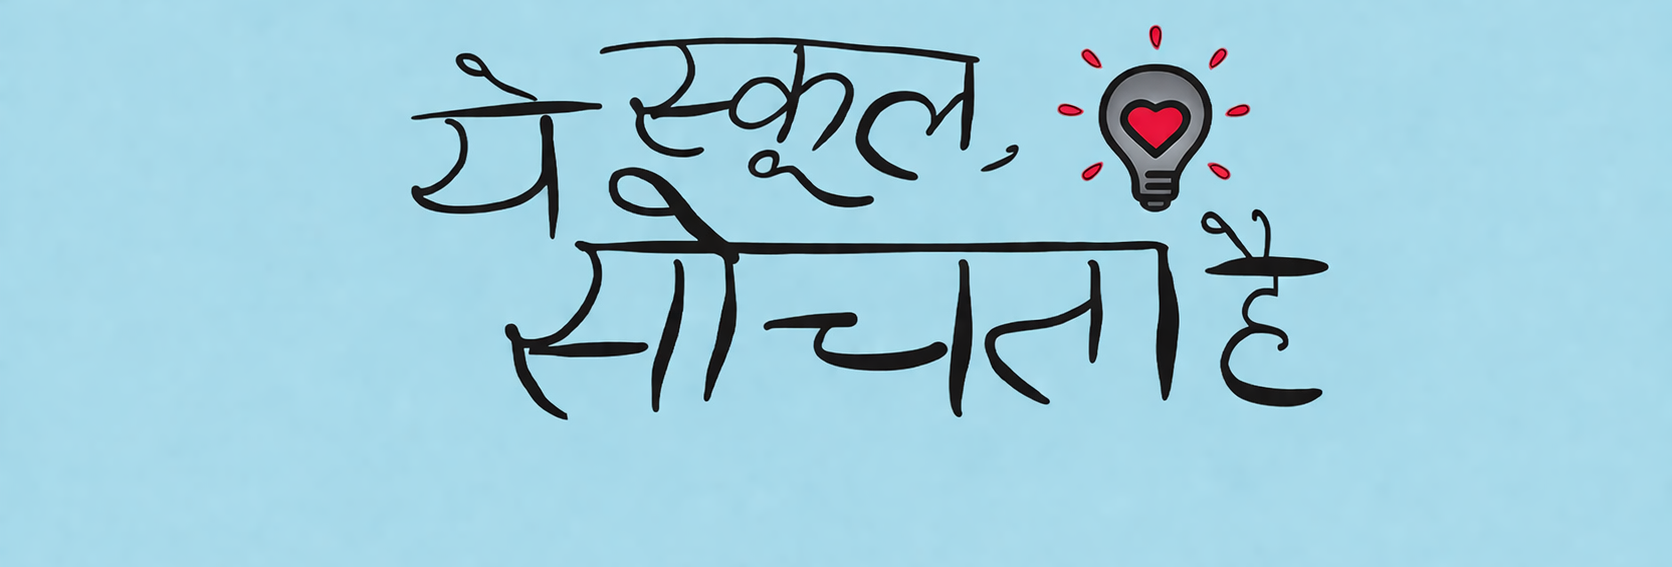 ये स्कूल,
सोचता है